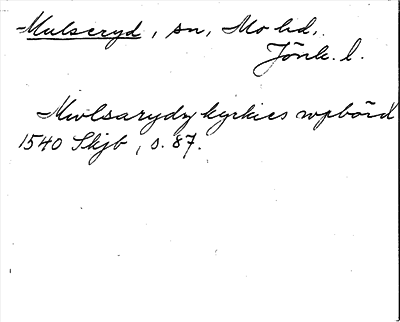 Mulseryd, sn, Mo hd,
Jönk. l.
Mwlsarydz kyrkies wpbörd
1540 Skjb, s. 87.